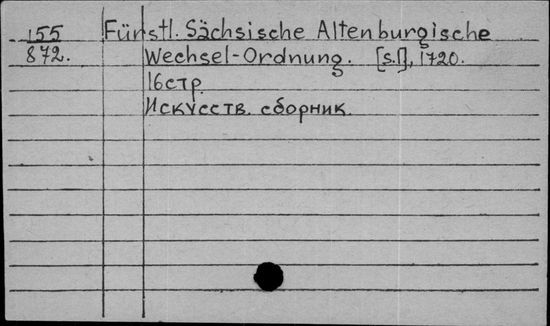 155 Fürstl. Sächsische Altenburgische
872. Wechsel-Ordnung. [s.l], 1720.
16стр.
Искусств. сборник.